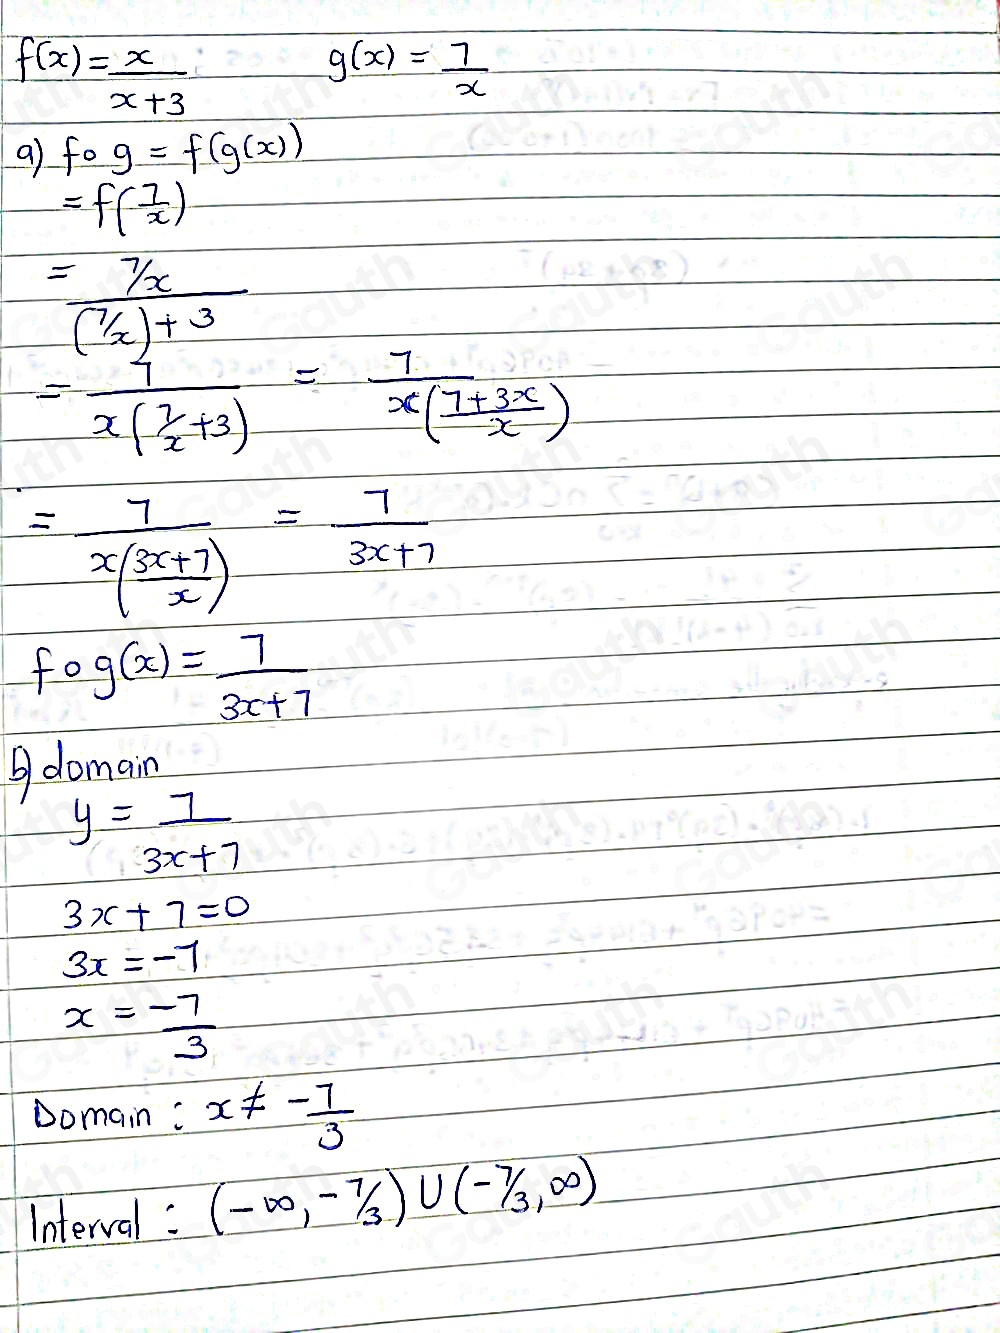 f(x) = x/(x+3)    g(x) = 7/x
a) fog = f(g(x))
= f(7/x)
= (7/x)/((7/x)+3)
= 7/(x(7/x+3)) = 7/(x((7+3x)/x))
= 7/(x((3x+7)/x)) = 7/(3x+7)
fog(x) = 7/(3x+7)
b) domain
y = 7/(3x+7)
3x+7=0
3x=-7
x = -7/3
Domain : x ≠ -7/3
Interval : (-∞, -7/3) U (-7/3, ∞)
Gauth